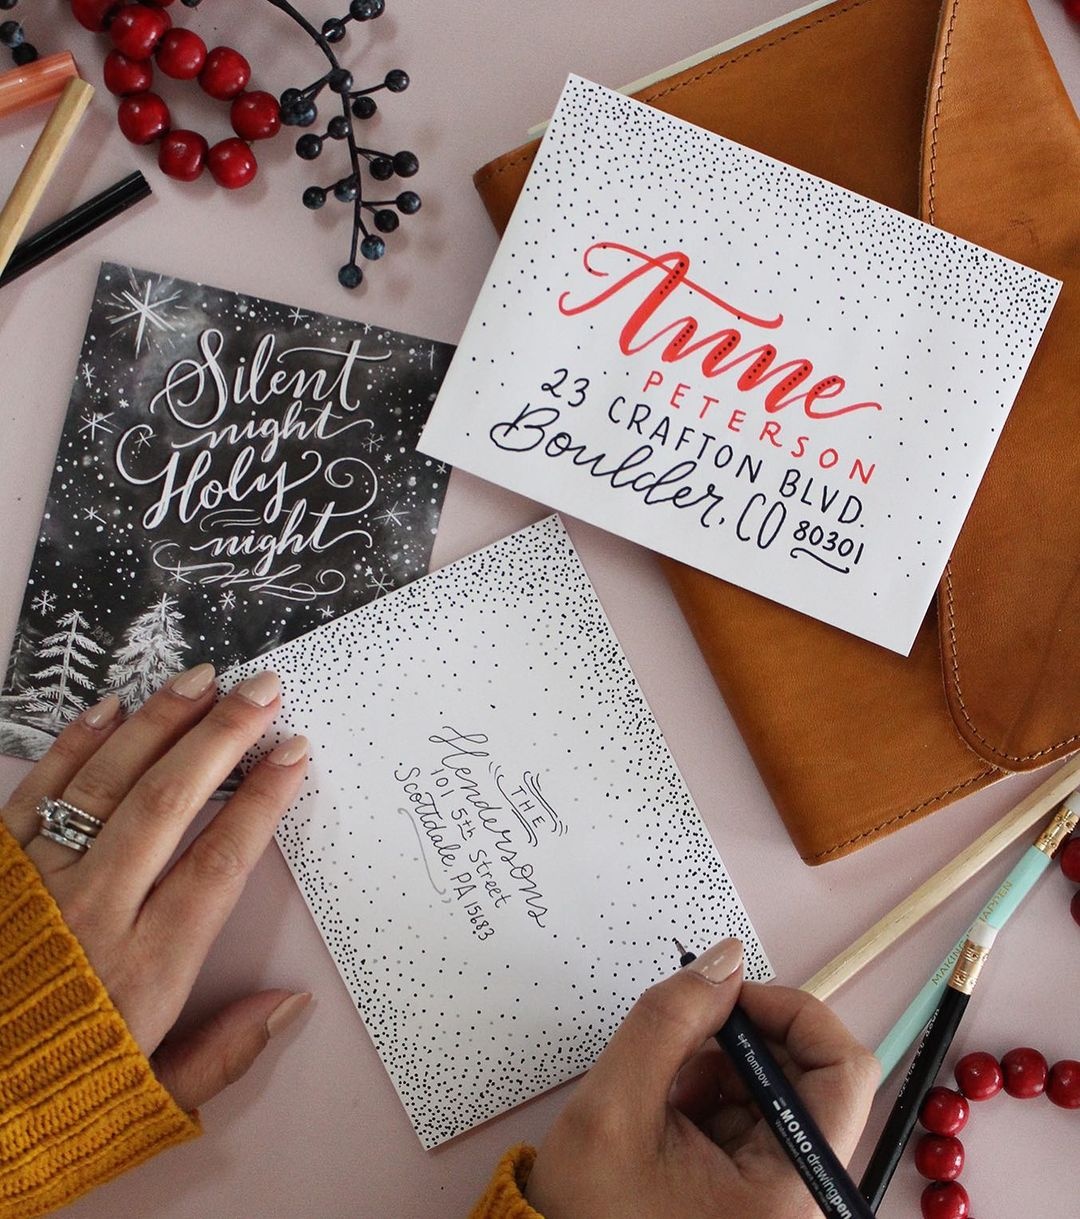 Silent
night
Holy
night
Anne
PETERSON
23 CRAFTON BLVD.
Boulder, CO 80301
THE
Hendersons
101 5th Street
Scottdale, PA 15683
Tombow
MONO drawingpen
MAKING IT HAPPEN